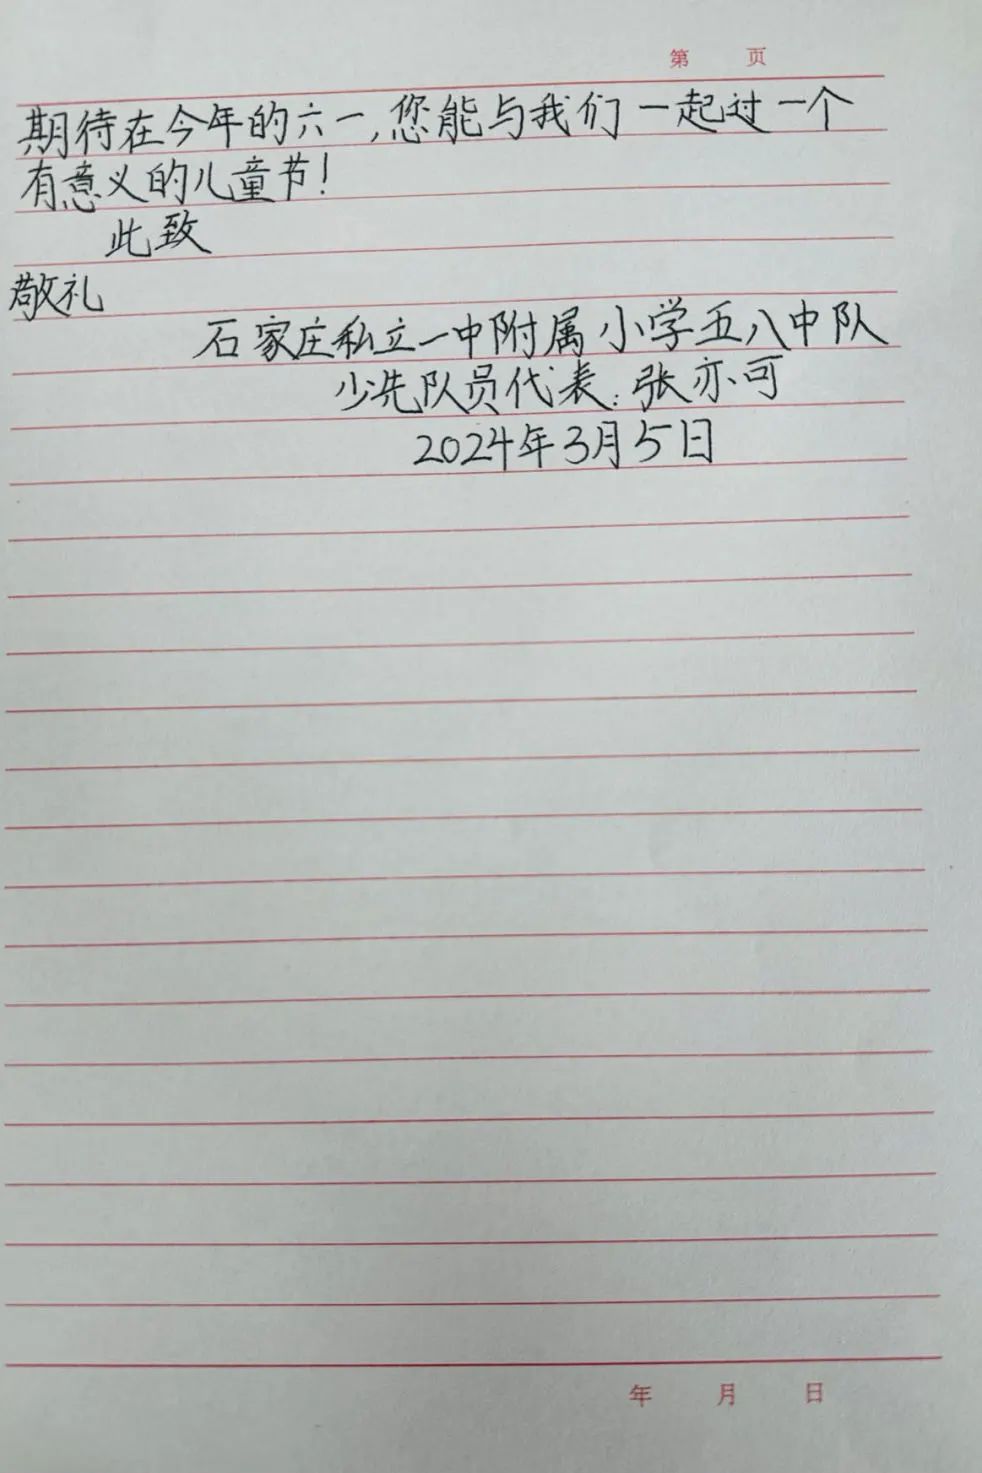 第 页
期待在今年的六一,您能与我们一起过一个
有意义的儿童节!
此致
敬礼
石家庄私立一中附属小学五八中队
少先队员代表:张亦可
2024年3月5日
年 月 日